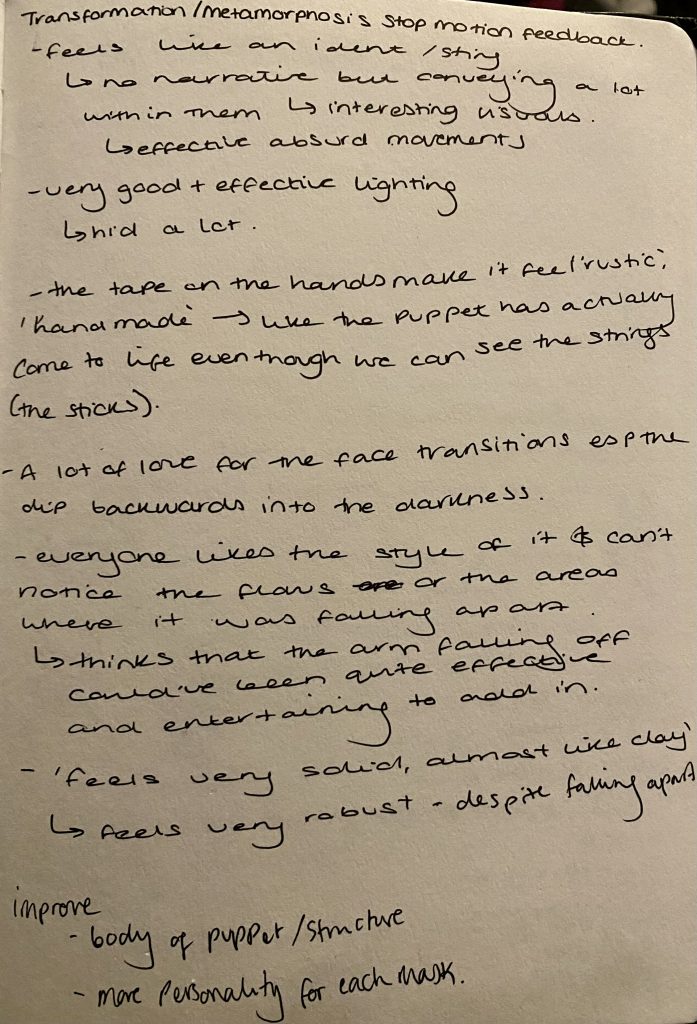 Transformation/metamorphosis stop motion feedback.
- feels like an ident/sting
↳ no narrative but conveying a lot
within them ↳ interesting visuals.
↳ effective absurd movements
- very good + effective lighting
↳ hid a lot.
- the tape on the hands make it feel 'rustic',
'handmade' → like the puppet has actually
come to life even though we can see the strings
(the sticks).
- A lot of love for the face transitions esp the
dip backwards into the darkness.
- everyone likes the style of it & can't
notice the flaws are or the areas
where it was falling apart.
↳ thinks that the arm falling off
could've been quite effective
and entertaining to add in.
- 'feels very solid, almost like clay'
↳ feels very robust - despite falling apart
improve
- body of puppet/structure
- more personality for each mask.